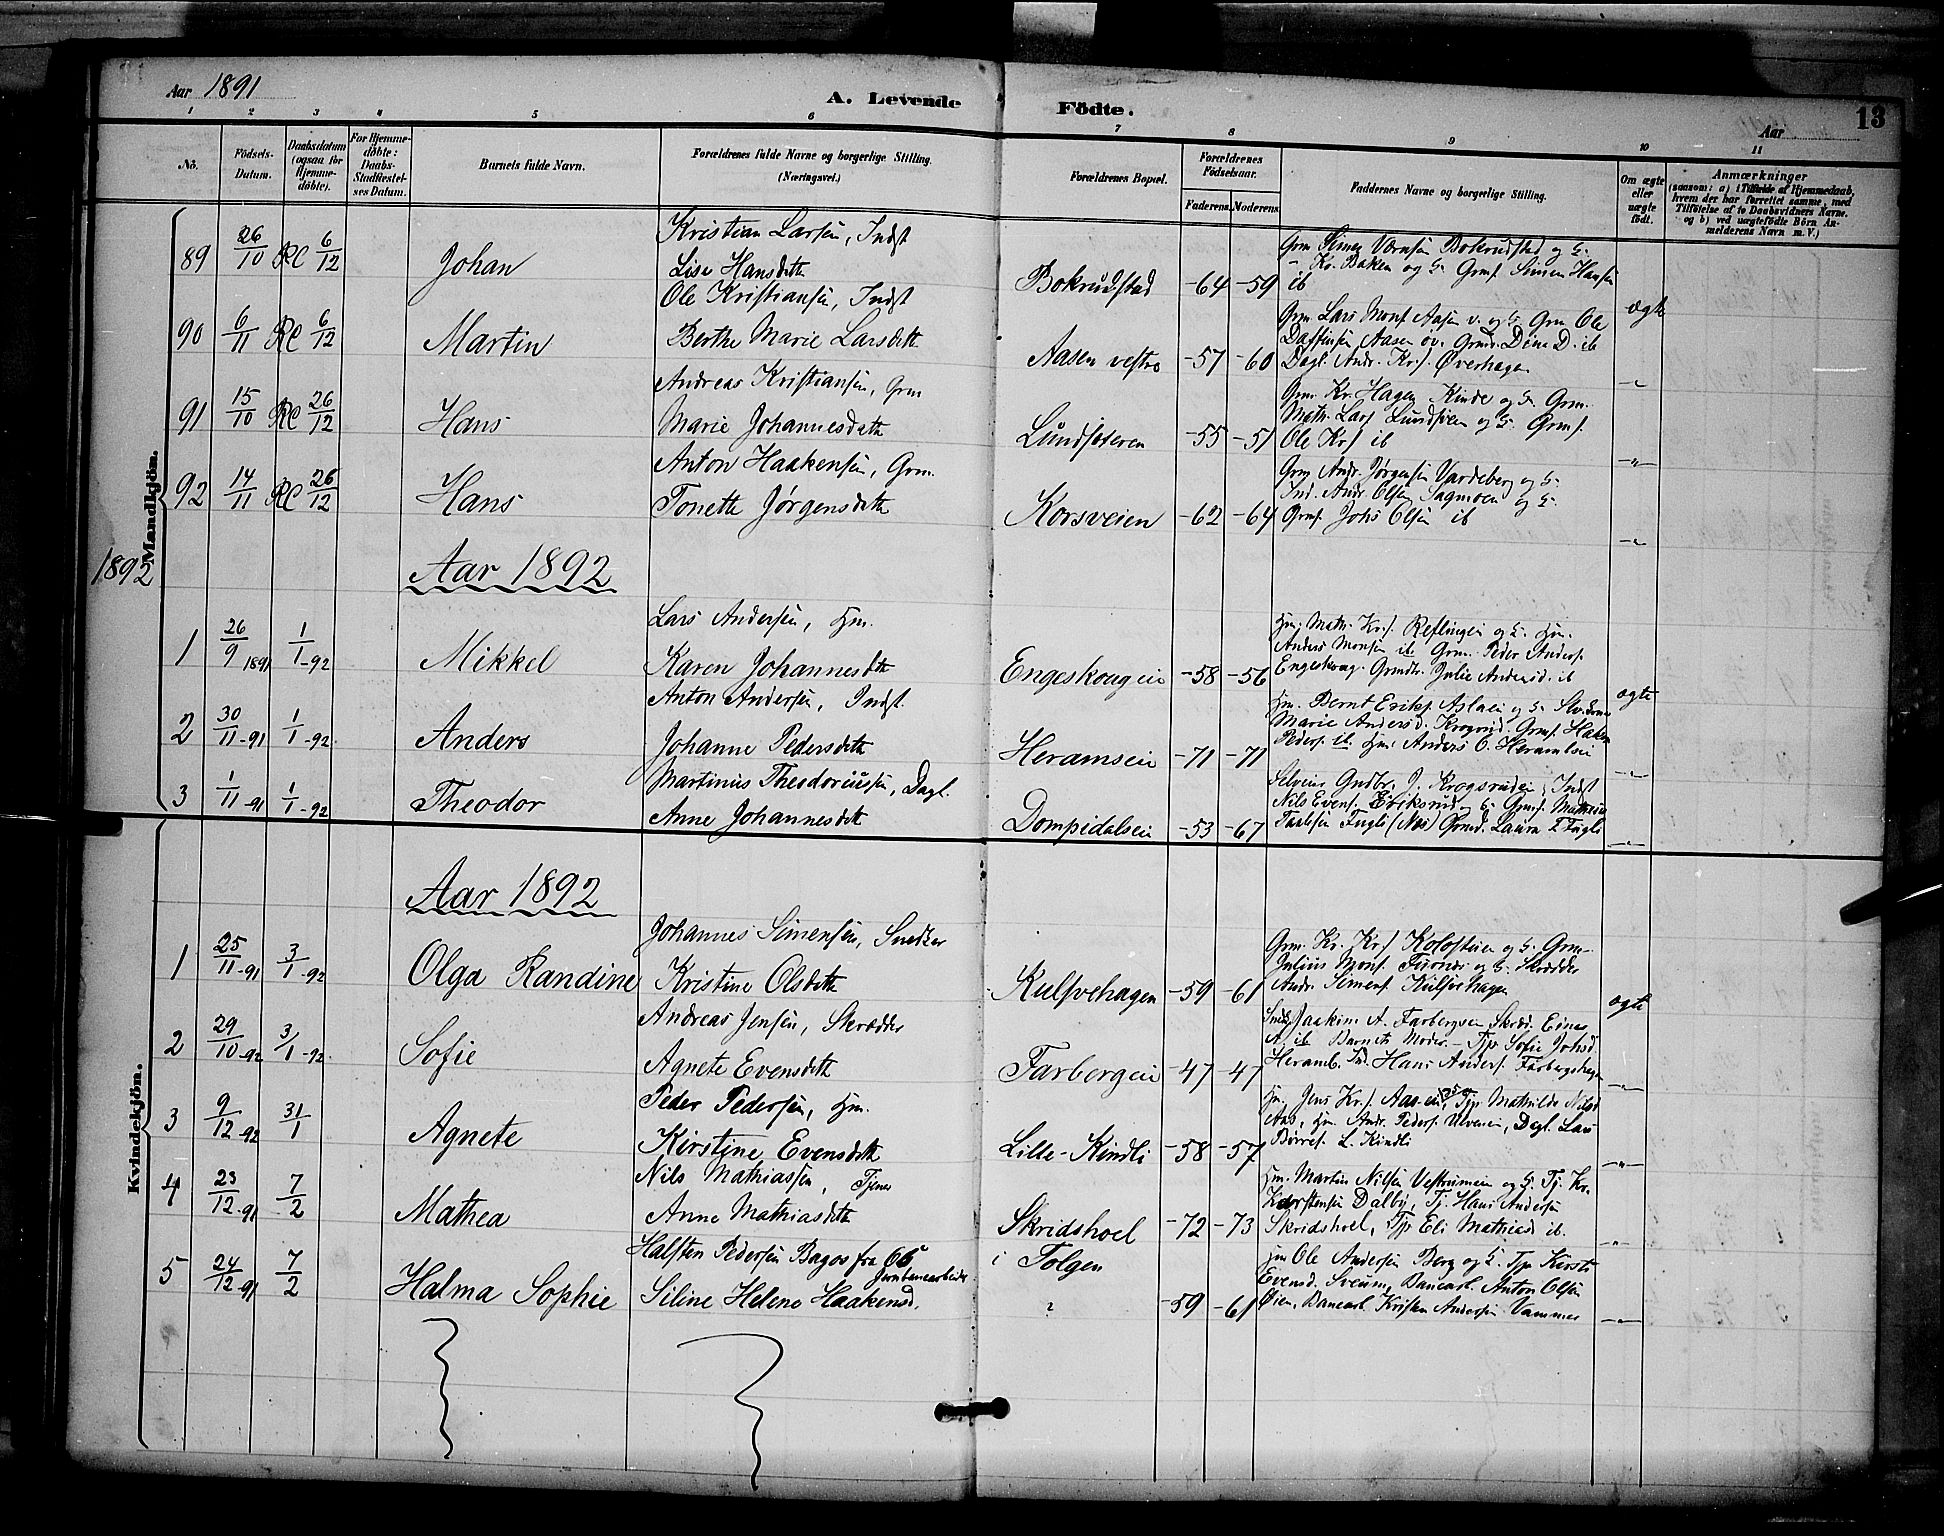 Aar 1891
A. Levende Födte.
Aar
13
1 2 3 4 5 6 7 8 9 10 11
No.
Födsels-Datum.
Daabsdatum (ogsaa for Hjemme-döbte).
For Hjemme-döbte: Daabs-Stadfæstel-ses Datum.
Barnets fulde Navn.
Forældrenes fulde Navne og borgerlige Stilling. (Næringsvei.)
Forældrenes Bopæl.
Forældrenes Födselsaar.
Faderens. Moderens.
Faddernes Navne og borgerlige Stilling.
Om ægte eller uægte födt.
Anmærkninger
(saasom: a) i Tilfælde af Hjemmedaab, hvem der har forrettet samme, med Tilföielse af to Daabsvidners Navne. og b) ved uægtefödte Börn Anmelderens Navn m. V.)
Mandkjön.
89 26/10 RC 6/12 Johan
Kristian Larsen, Indst
Lise Hansdatter
Bokrudstad -64 -59
ib
ægte
90 6/11 RC 6/12 Martin
Ole Kristiansen, Indst
Berthe Marie Larsdatter
Aasen vestre -57 -60
Grm. Lars Mons. Aasen v. og h. Grm Ole
Dagl. Andr. Kr.s. Øverhagen
-"-
91 15/10 RC 26/12 Hans
Andreas Kristiansen, Grm
Marie Johannesdatter
Lundsæteren -55 -51
Grm. Kr. Hagen Kinde og h. Grm.
Ole Krs ib
-"-
92 14/11 RC 26/12 Hans
Anton Haakensen, Grm.
Tonette Jørgensdatter
Korsveien -62 -64
Grm Andr. Jørgensen Vardeberg og h.
Ind. Andr. Olsen Sagmoen og h.
Grms. Johs Olsen ib
-"-
1892
Aar 1892
1 26/9 1891 1/1-92 Mikkel
Lars Andersen, Hm.
Karen Johannesdtr
Engeskougeie -58 -56
Anders Monsen ib Grm. Peder Anders.
Engeskoug. Grmdtr. Julie Andersd. ib
ægte
2 30/11-91 1/1-92 Anders
Anton Andersen, Indst.
Johanne Pedersdatter
Heramseie -71 -71
Marie Andersd. Krogsrud. Grms. Haken
Peders. ib. Hm. Anders O. Heramseie
-"-
3 1/11-91 1/1-92 Theodor
Martinus Theodoriussen, Dagl.
Anne Johannesdatter
Dompidalseie -53 -67
Selveier Gudbr. J. Krogsrudeie, Indst
Nils Evens. Eriksrud og h. Grms. Mathias
Paulsen Fugli (Næs) Grmd. Laura T Fugli
-"-
Kvindekjön.
Aar 1892
1 25/11-91 3/1-92 Olga Randine
Johannes Simensen, Snedker
Kristine Olsdatter
Kulsvehagen -59 -61
Julius Mons. og h. Skrædder
Andr. Simens. Kulsvehagen
ægte
2 29/10-92 3/1-92 Sofie
Andreas Jensen, Skrædder
Agnete Evensdatter
Farbergeie -47 -47
Joakim A. Farbergeie Skræd. Einar
A. ib Barnets Moder - Tjp Sofie Johsd.
Heramb. Ind. Hans Anders. Farbergshagen
-"-
3 9/12-92 31/1 Agnete
Peder Pedersen, Hm.
Kirstine Evensdatter
Lille-Kindli -58 -57
Hm. Jens Kr.s. Aaseeie, Tjp. Mathilde Nilsd
Aas, Hm. Andr. Peders. Ulveneie, Dagl. Lars
Børres. L. Kindli
-"-
4 23/12-91 7/2 Mathea
Nils Mathiassen, Tjener
Anne Mathiasdatter
Skridshoel -72 -73
Hm. Martin Nilsen Vestrumeie og h. Tj. Kr.
Karstensen Dalby, Tj. Hans Andersen
Skridshoel, Tjp Eli Mathiasd ib.
-"-
5 24/12-91 7/2 Halma Sophie
Halsten Pedersen Bagos fra Os
Jernbanearbeider
Siline Helene Haakensd.
i Tolgen
? -59 -61
Hm Ole Andersen Berg og h. Tjp Kersti
Evensd. Sveum, Banearb. Anton Olsen
Øien, Banearb. Kristen Andersen Vammes
-"-